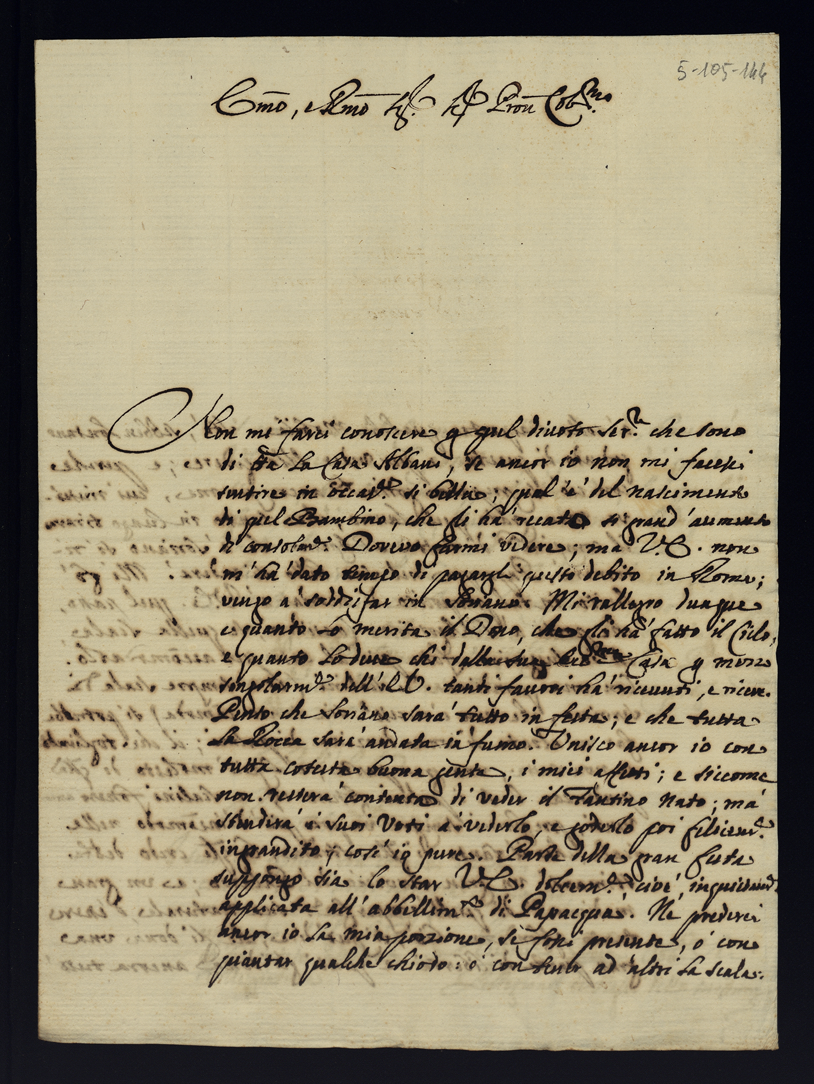 5-105-144
Em̃o, e Rm̃o Sig.r Sig.r Pron̄ Col.mo
Non mi farei conoscere per quel divoto Ser.re che sono
di tta la Casa Albani, se ancor io non mi facessi
sentire in occas.e sì bella; qual'è del nascimento
di quel Bambino, che gli hà recato sì grand'aumento
di consolaz.e Dovevo farmi vedere; ma V.E. non
m'hà dato tempo di pagargli questo debito in Roma;
vengo à soddisfar in Soriano. Mi rallegro dunque
e quanto lo merita il Dono, che gli hà fatto il Cielo,
e quanto lo deve chi dalla sua Casa per mera
singolarm.te dell'E.V. tanti favori hà ricevuti, e riceve.
Penso che Soriano sarà tutto in festa; e che tutta
la Rocca sarà andata in fumo. Unisco ancor io con
tutta cotesta buona gente, i miei affetti; e siccome
non resterà contenta di veder il Fantino nato; mà
stenderà i suoi Voti à vederlo, e goderlo poi felicem.te
ingrandito; così io pure. Parte della gran festa
suppongo sia lo star V.E. dolcem.te cioè, inquietam.te
applicata all'abbellim.to di Papacquà. Nè prederei
ancor io la mia porzione, se fossi presente, ò con
piantar qualche chiodo: ò con tener ad altri la scala.